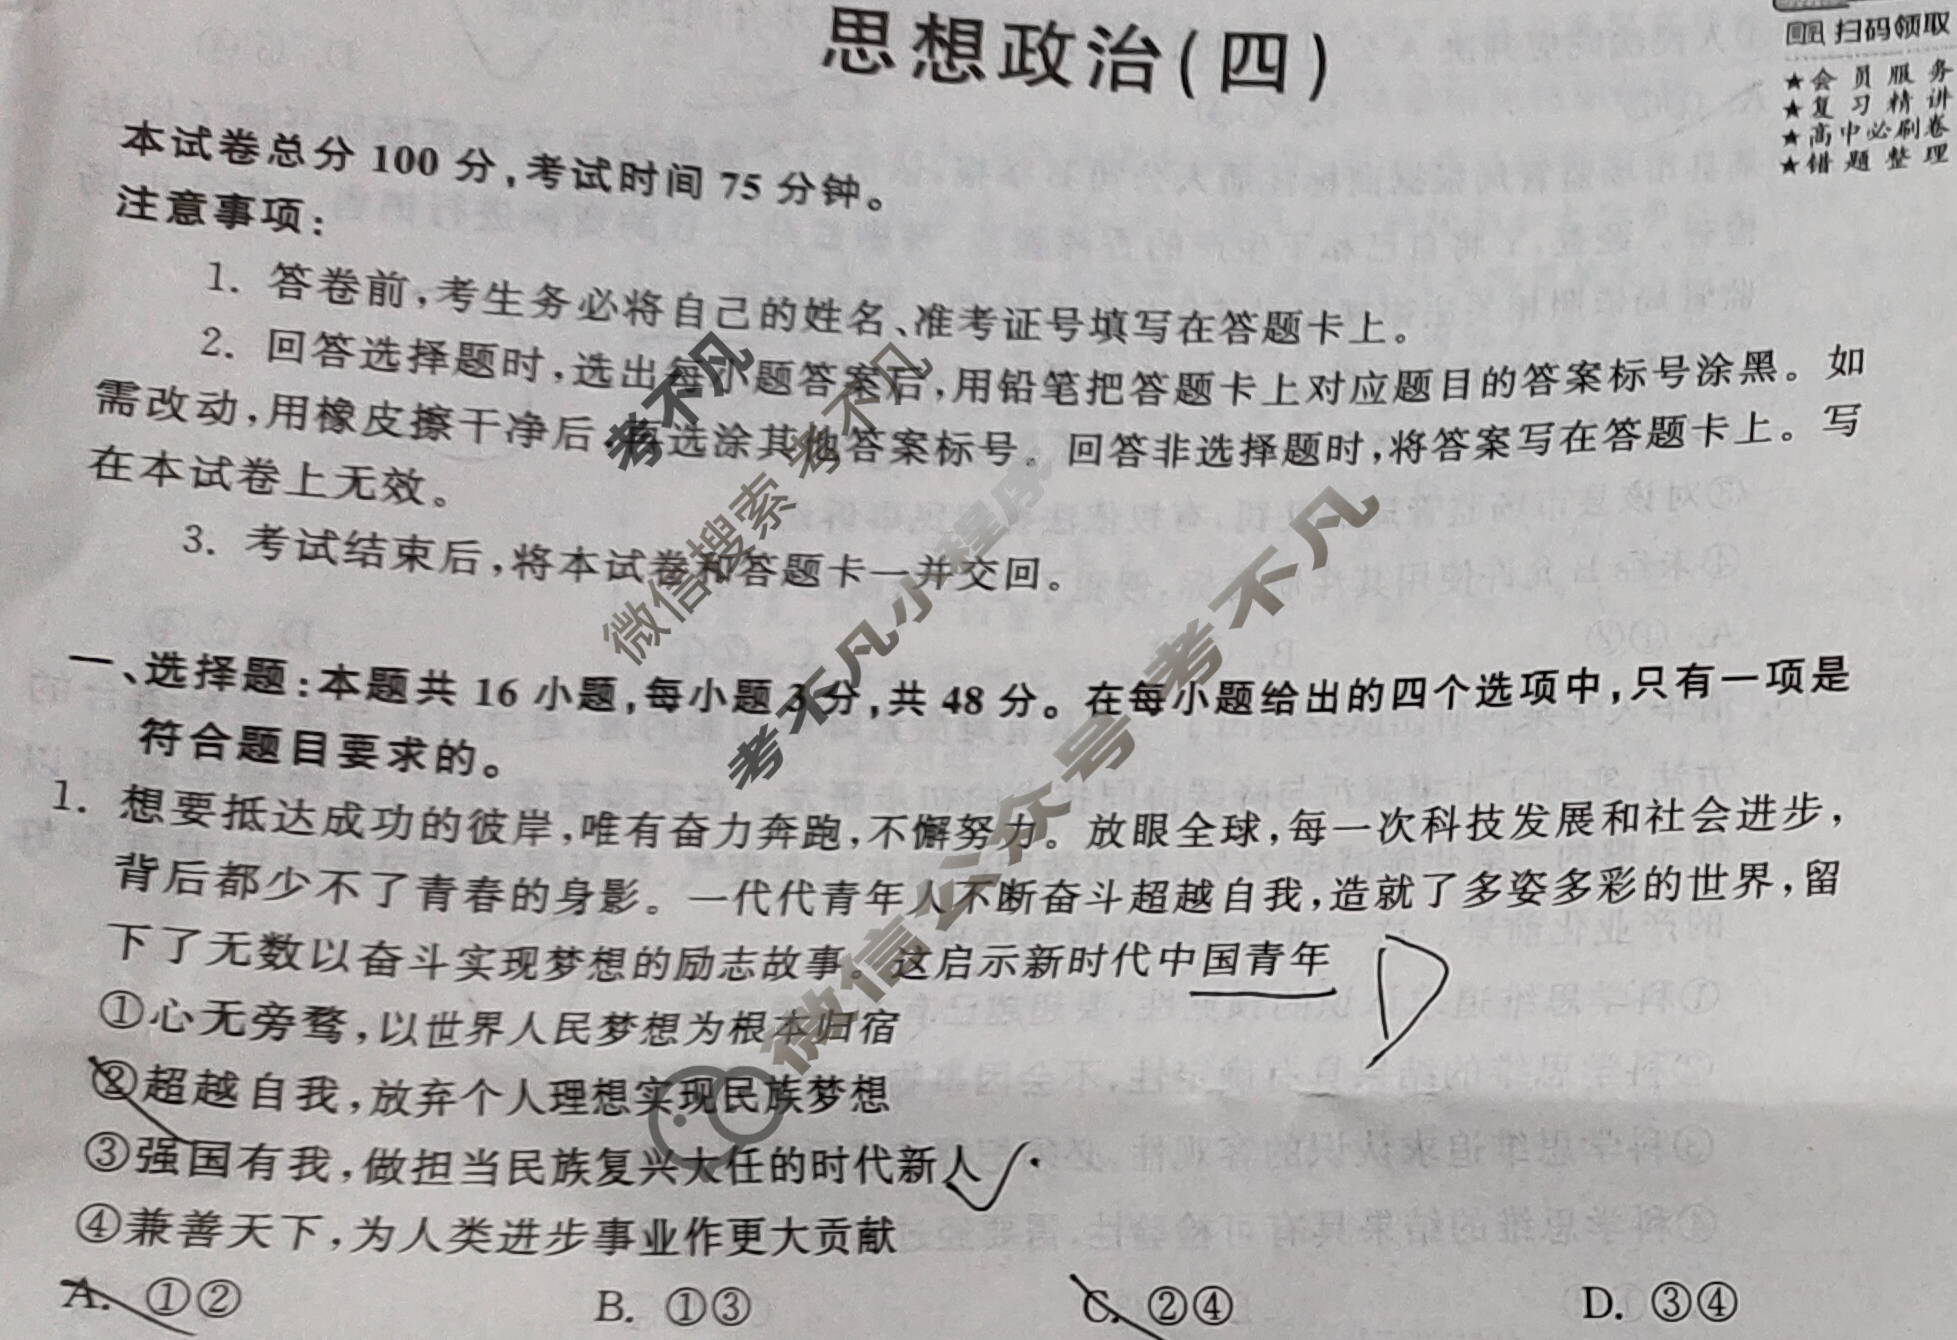 思想政治(四)
扫码领取
★会员服务
★复习精讲
★高中必刷卷
★错题整理
本试卷总分 100 分,考试时间 75 分钟。
注意事项:
1. 答卷前,考生务必将自己的姓名、准考证号填写在答题卡上。
2. 回答选择题时,选出每小题答案后,用铅笔把答题卡上对应题目的答案标号涂黑。如
需改动,用橡皮擦干净后,再选涂其他答案标号。回答非选择题时,将答案写在答题卡上。写
在本试卷上无效。
3. 考试结束后,将本试卷和答题卡一并交回。
一、选择题:本题共 16 小题,每小题 3 分,共 48 分。在每小题给出的四个选项中,只有一项是
符合题目要求的。
1. 想要抵达成功的彼岸,唯有奋力奔跑,不懈努力。放眼全球,每一次科技发展和社会进步,
背后都少不了青春的身影。一代代青年人不断奋斗超越自我,造就了多姿多彩的世界,留
下了无数以奋斗实现梦想的励志故事。这启示新时代中国青年
D
①心无旁骛,以世界人民梦想为根本归宿
②超越自我,放弃个人理想实现民族梦想
③强国有我,做担当民族复兴大任的时代新人
④兼善天下,为人类进步事业作更大贡献
A. ①② B. ①③ C. ②④ D. ③④
考不凡
微信搜索 考不凡
考不凡小程序
微信公众号 考不凡